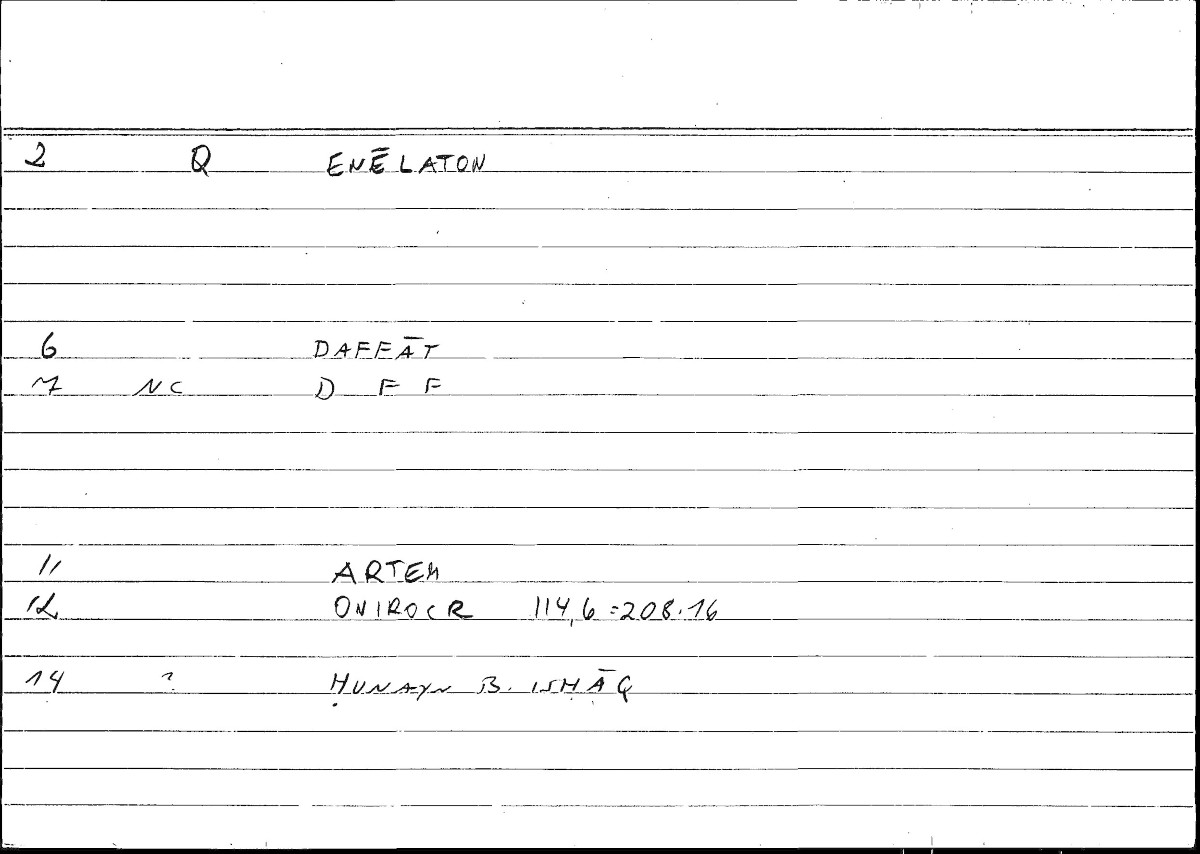 2 Q ENĒLATON
6 DAFFĀT
7 NC D F F
11 ARTEM
12 ONIROCR 114,6=208.16
14 ? ḤUNAYN B. ISḤĀQ